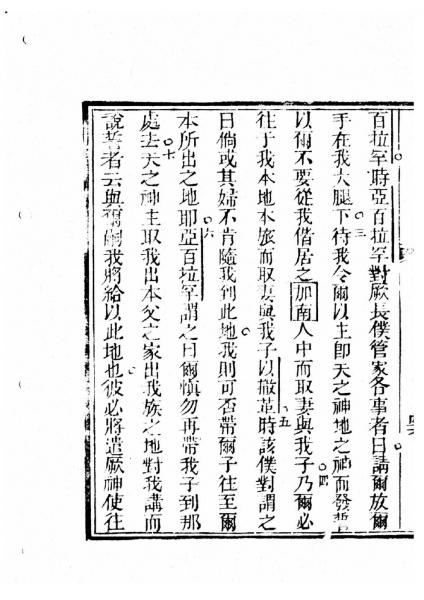 百拉罕時亞百拉罕對厥長僕管家各事者曰講爾放爾
手在我大腿下三待我令爾以主即天之神地之神而發誓
以爾不要從我偕居之加南人中而取妻與我子四乃爾必
往于我本地本族而取妻與我子以撒革時五該僕對謂之
曰倘或其婦不肯隨我到此地我則可否帶爾子往至爾
本所出之地耶六亞百拉罕謂之曰爾慎勿再帶我子到那
處去七天之神主取我出本父之家出我族之地對我講而
說誓者云與爾嗣我將給以此地也彼必將遣厥神使往